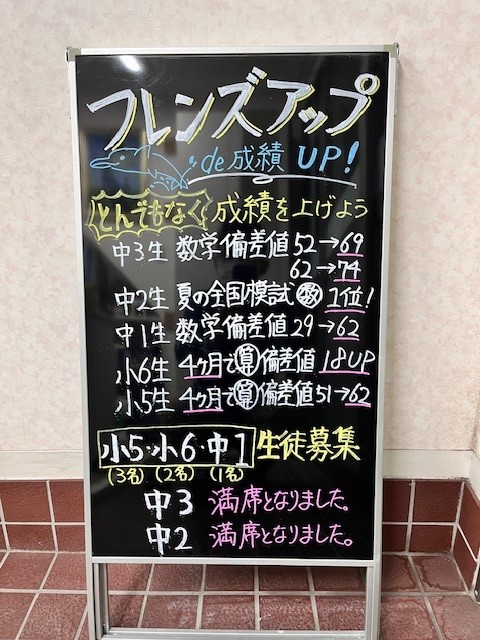 フレンズアップ
de成績 UP!
とんでもなく 成績を上げよう
中3生 数学偏差値 52→69
62→74
中2生 夏の全国模試 数 1位!
中1生 数学偏差値 29→62
小6生 4ヶ月で算偏差値 18UP
小5生 4ヶ月で算偏差値 51→62
小5・小6・中1 生徒募集
(3名) (2名) (1名)
中3 満席となりました。
中2 満席となりました。